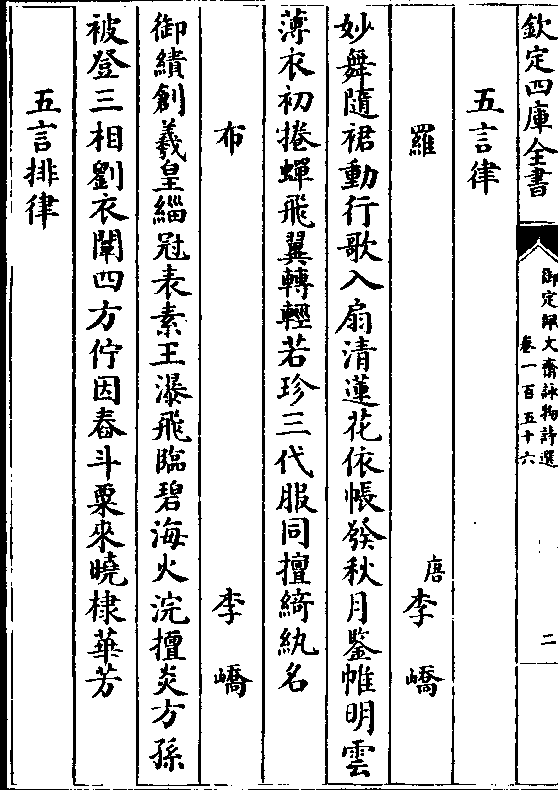 欽定四庫全書
御定佩文齋詠物詩選
卷一百五十六
二
五言律
羅
唐李嶠
妙舞隨裙動行歌入扇清蓮花依帳發秋月鑒帷明雲
薄衣初捲蟬飛翼轉輕若珍三代服同擅綺紈名
布
李嶠
御績創羲皇緇冠表素王瀑飛臨碧海火浣擅炎方孫
被登三相劉衣闡四方佇因舂斗粟來曉棣華芳
五言排律